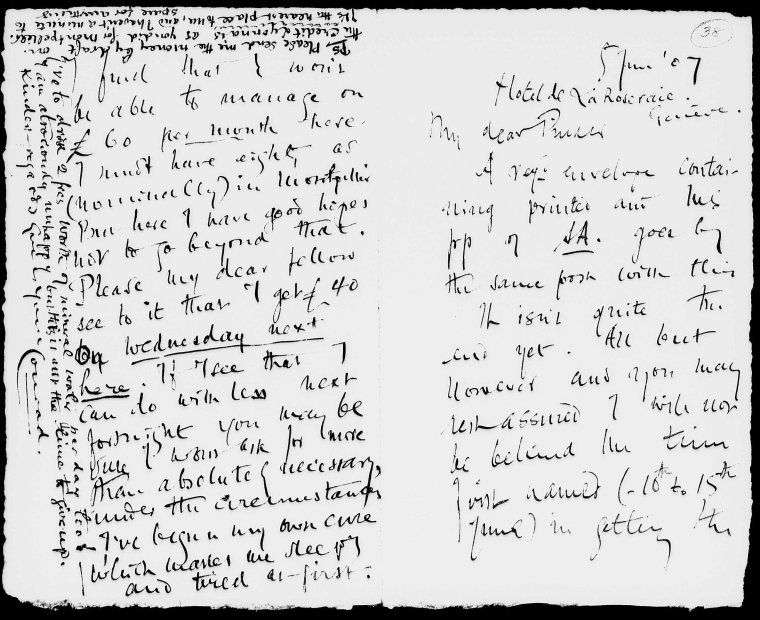 38
5 June '07
Hotel de La Roseraie.
Genève.
My dear Pinker
A reg. envelope contai-
ning printed and
pp of SA. goes by
the same post with this
It isn't quite the
end yet. All but
However and you may
rest assured I will not
be behind the time
first named (-10th to 15th
June) in getting the
find that I won't
be able to manage on
£60 per month here.
I must have eighty as
(nominally) in Montpellier
But here I have good hopes
not to go beyond that.
Please my dear fellow
see to it that I get £40
on Wednesday next
here. If I see that I
can do with less next
fortnight you may be
sure I won't ask for more
than absolutely necessary,
under the circumstances
I've begun my own cure
which makes me sleepy
and tired at-first:
I've to drink 2 frs worth of mineral water per day too
I am atrociously unhappy but this is not the time to give up.
Kindest regards Yours Conrad.
PS Please send me the money by draft on
the Credit Lyonnais as you did for Montpellier.
It's the nearest place to us, and I haven't a minute to
spare for anything